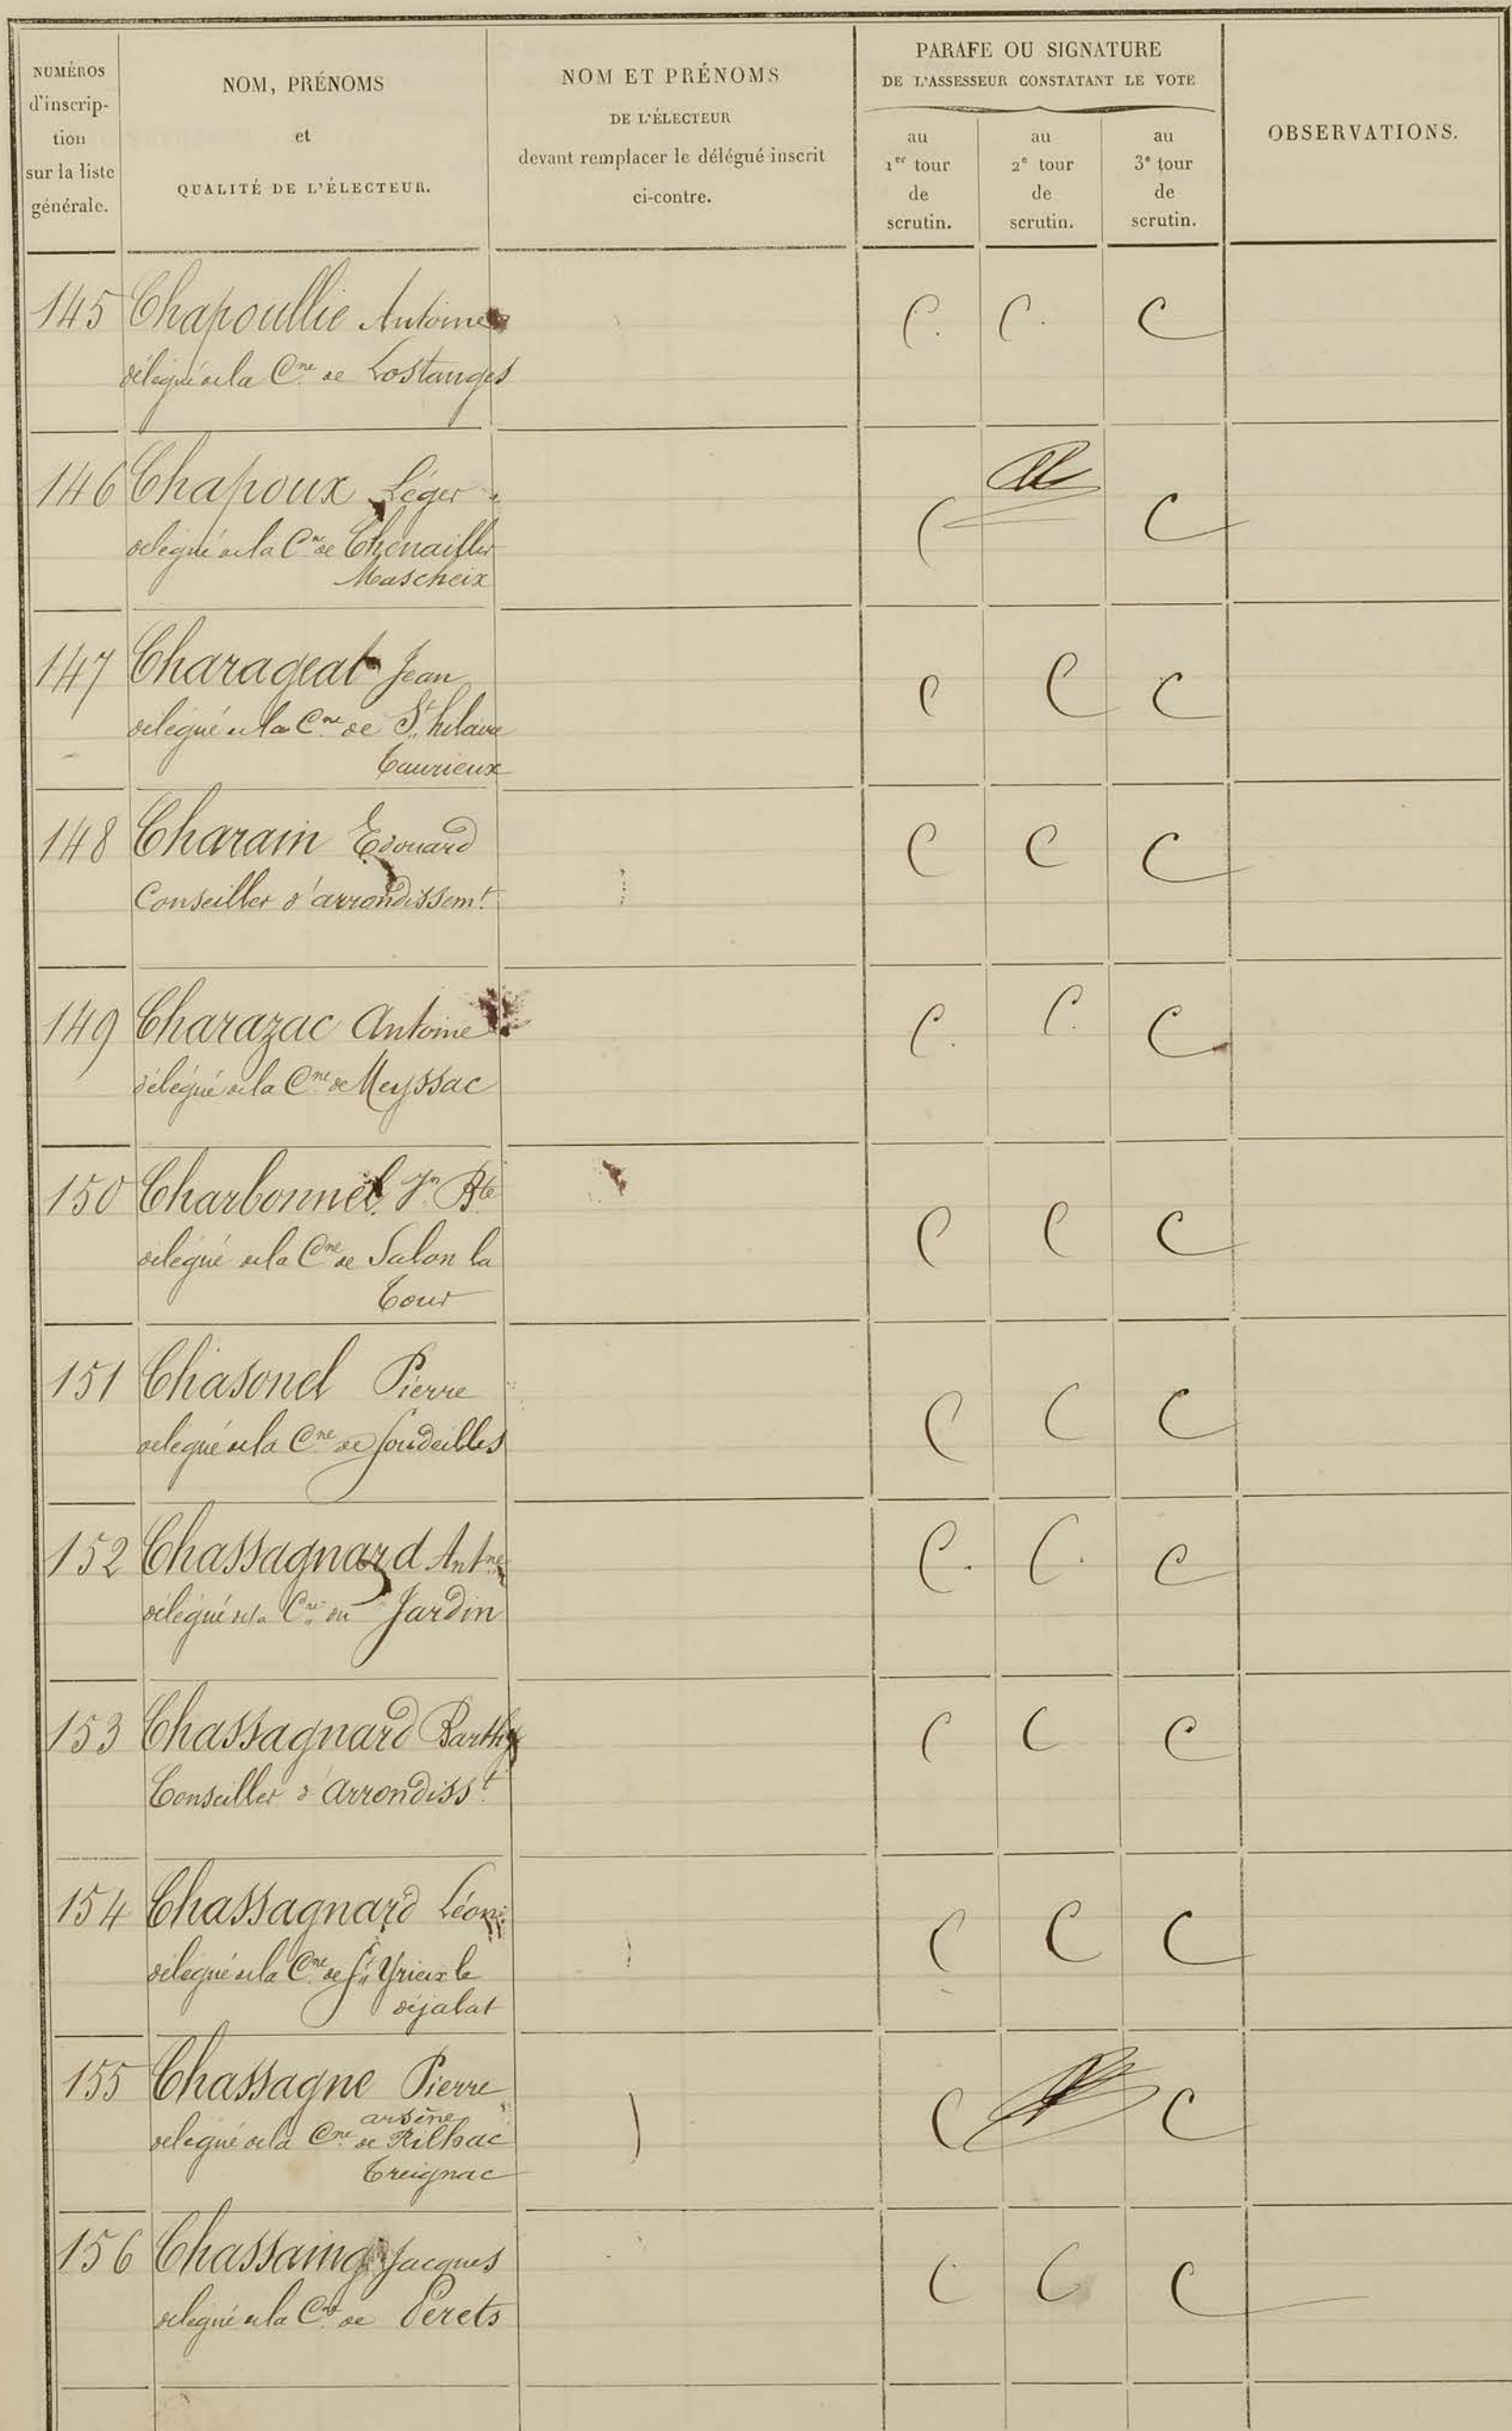 NUMÉROS
d'inscrip-
tion
sur la liste
générale.
NOM, PRÉNOMS
et
QUALITÉ DE L'ÉLECTEUR.
NOM ET PRÉNOMS
DE L'ÉLECTEUR
devant remplacer le délégué inscrit
ci-contre.
PARAFE OU SIGNATURE
DE L'ASSESSEUR CONSTATANT LE VOTE
au
1er tour
de
scrutin.
au
2e tour
de
scrutin.
au
3e tour
de
scrutin.
OBSERVATIONS.
145 Chapoullie Antoine C. C. C
délégué de la Cne de Lostanges
146 Chapoux Léger C C
délégué de la Cne de Chenailler
Mascheix
147 Charageat Jean C C C
délégué de la Cne de St hilaire
Taurieux
148 Charain Edouard C C C
Conseiller d'arrondissemt
149 Charazac Antoine C. C. C
délégué de la Cne de Meyssac
150 Charbonnel Jn Bte C C C
délégué de la Cne de Salon la
Tour
151 Chasonel Pierre C C C
délégué de la Cne de Soudeilles
152 Chassagnard Antne C. C. C
délégué de la Cne du Jardin
153 Chassagnard Barthy C C C
Conseiller d'Arrondisst
154 Chassagnard Léon C C C
délégué de la Cne de St Yrieix le
déjalat
155 Chassagne Pierre C C
arsène
délégué de la Cne de Rilhac
Treignac
156 Chassaing Jacques C C C
délégué de la Cne de Perets